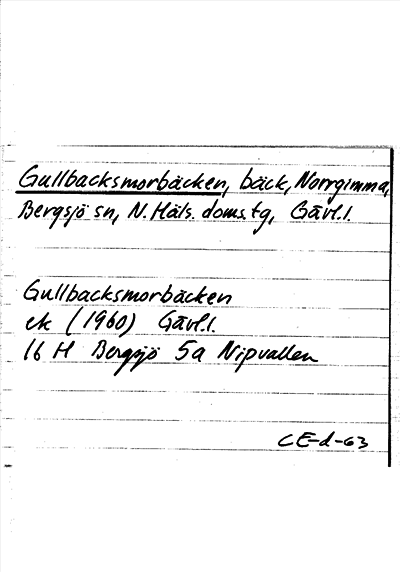 Gullbacksmorbäcken, bäck, Norrgimma,
Bergsjö sn, N. Häls. doms.tg, Gävl.l.
Gullbacksmorbäcken
ek (1960) Gävl.l.
16 H Bergsjö 5a Nipvallen
CE-d-63